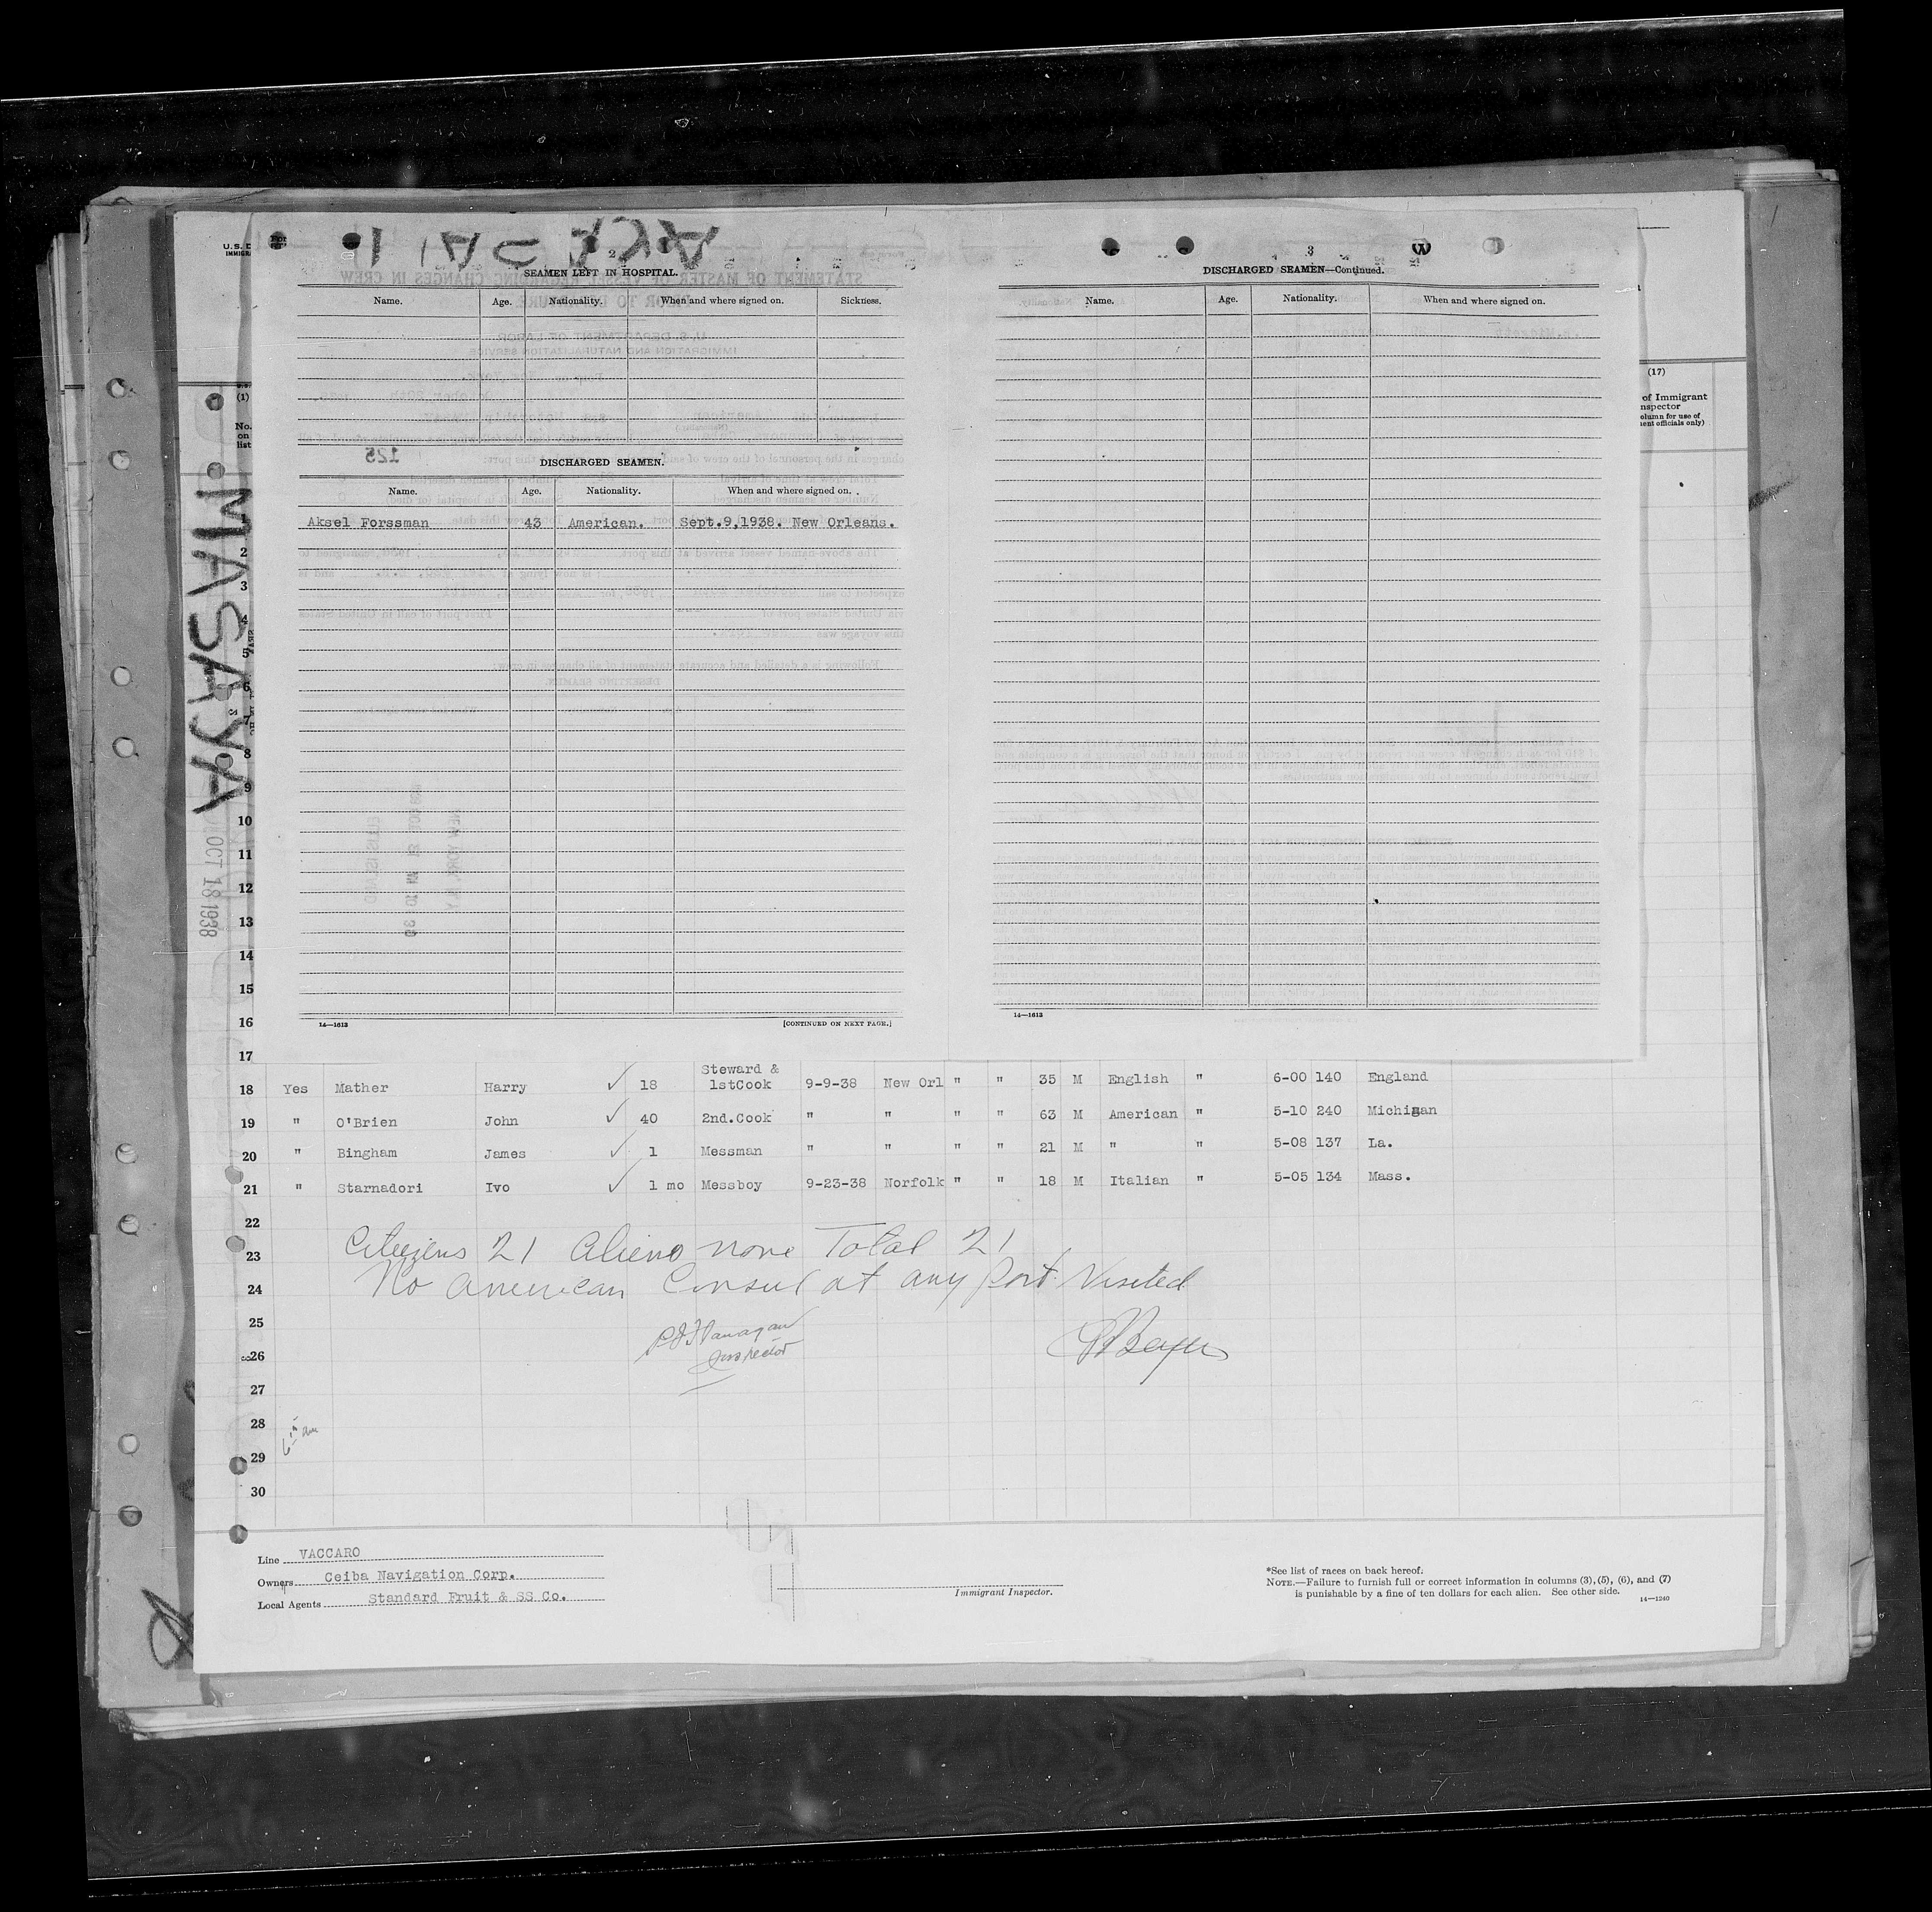 2
SEAMEN LEFT IN HOSPITAL.
Name. Age. Nationality. When and where signed on. Sickness.
DISCHARGED SEAMEN.
Name. Age. Nationality. When and where signed on.
Aksel Forssman 43 American. Sept.9,1938. New Orleans.
14—1613 [CONTINUED ON NEXT PAGE.]
3
DISCHARGED SEAMEN—Continued.
Name. Age. Nationality. When and where signed on.
14—1613
MASAYA
OCT 18 1938
(1)
No. on list
(17)
of Immigrant
nspector
olumn for use of
ent officials only)
1
2
3
4
5
6
7
8
9
10
11
12
13
14
15
16
17
18 Yes Mather Harry ✓ 18 Steward & 1stCook 9-9-38 New Orl " " 35 M English " 6-00 140 England
19 " O'Brien John ✓ 40 2nd.Cook " " " " 63 M American " 5-10 240 Michigan
20 " Bingham James ✓ 1 Messman " " " " 21 M " " 5-08 137 La.
21 " Starnadori Ivo ✓ 1 mo Messboy 9-23-38 Norfolk " " 18 M Italian " 5-05 134 Mass.
22
23 Citizens 21 Aliens none Total 21
24 No American Consul at any Port Visited
25
Inspector
26
27
28
29
30
Line VACCARO
Owners Ceiba Navigation Corp.
Local Agents Standard Fruit & SS Co.
Immigrant Inspector.
*See list of races on back hereof.
NOTE.—Failure to furnish full or correct information in columns (3), (5), (6), and (7)
is punishable by a fine of ten dollars for each alien. See other side.
14—1240